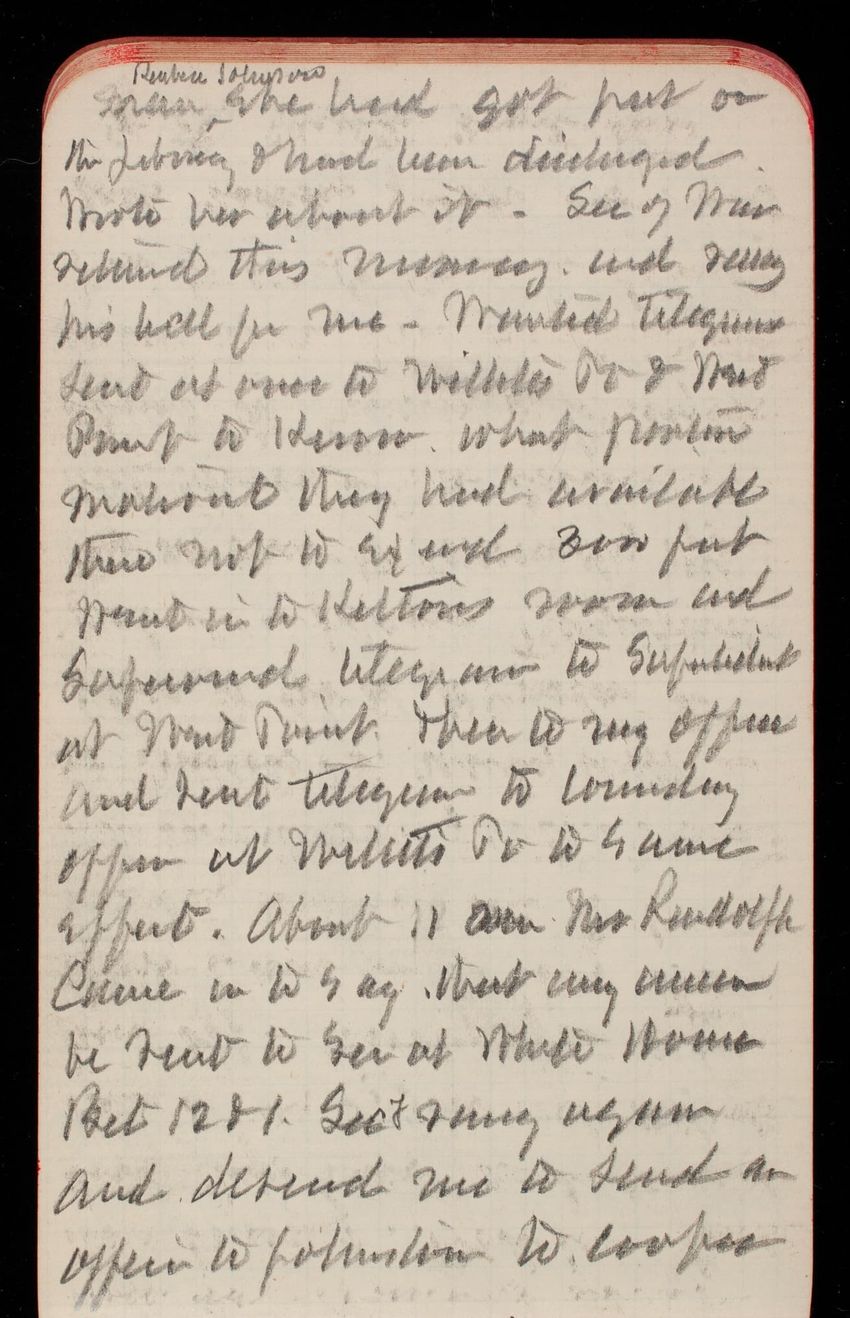 Reuben Johnson
man she had got put on
the & had been discharged.
Wrote her about it - Sec of War
returned this morning. and rang
his bell for me - Wanted telegram
sent at once to Willetts Pt & West
Point to know. what pontoon
material they had available
there not to exceed 300 feet
Went in to Keltons room and
telegram to
at West Point. then to my office
and sent telegram to Comndng
officer at Willetts Pt to same
effect. About 11 Mr Randolph
Came in to say. that any
be sent to Sec at White House
Bet 12 & 1. Secy rang again
and desired me to send an
officer to to